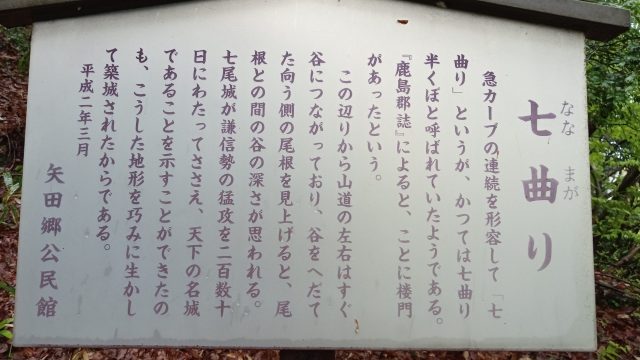 七曲り
なな まが
急カーブの連続を形容して「七
曲り」というが、かつては七曲り
半くぼと呼ばれていたようである。
『鹿島郡誌』によると、ことに楼門
があったという。
この辺りから山道の左右はすぐ
谷につながっており、谷をへだて
た向う側の尾根を見上げると、尾
根との間の谷の深さが思われる。
七尾城が謙信勢の猛攻を二百数十
日にわたってささえ、天下の名城
であることを示すことができたの
も、こうした地形を巧みに生かし
て築城されたからである。
平成二年三月
矢田郷公民館